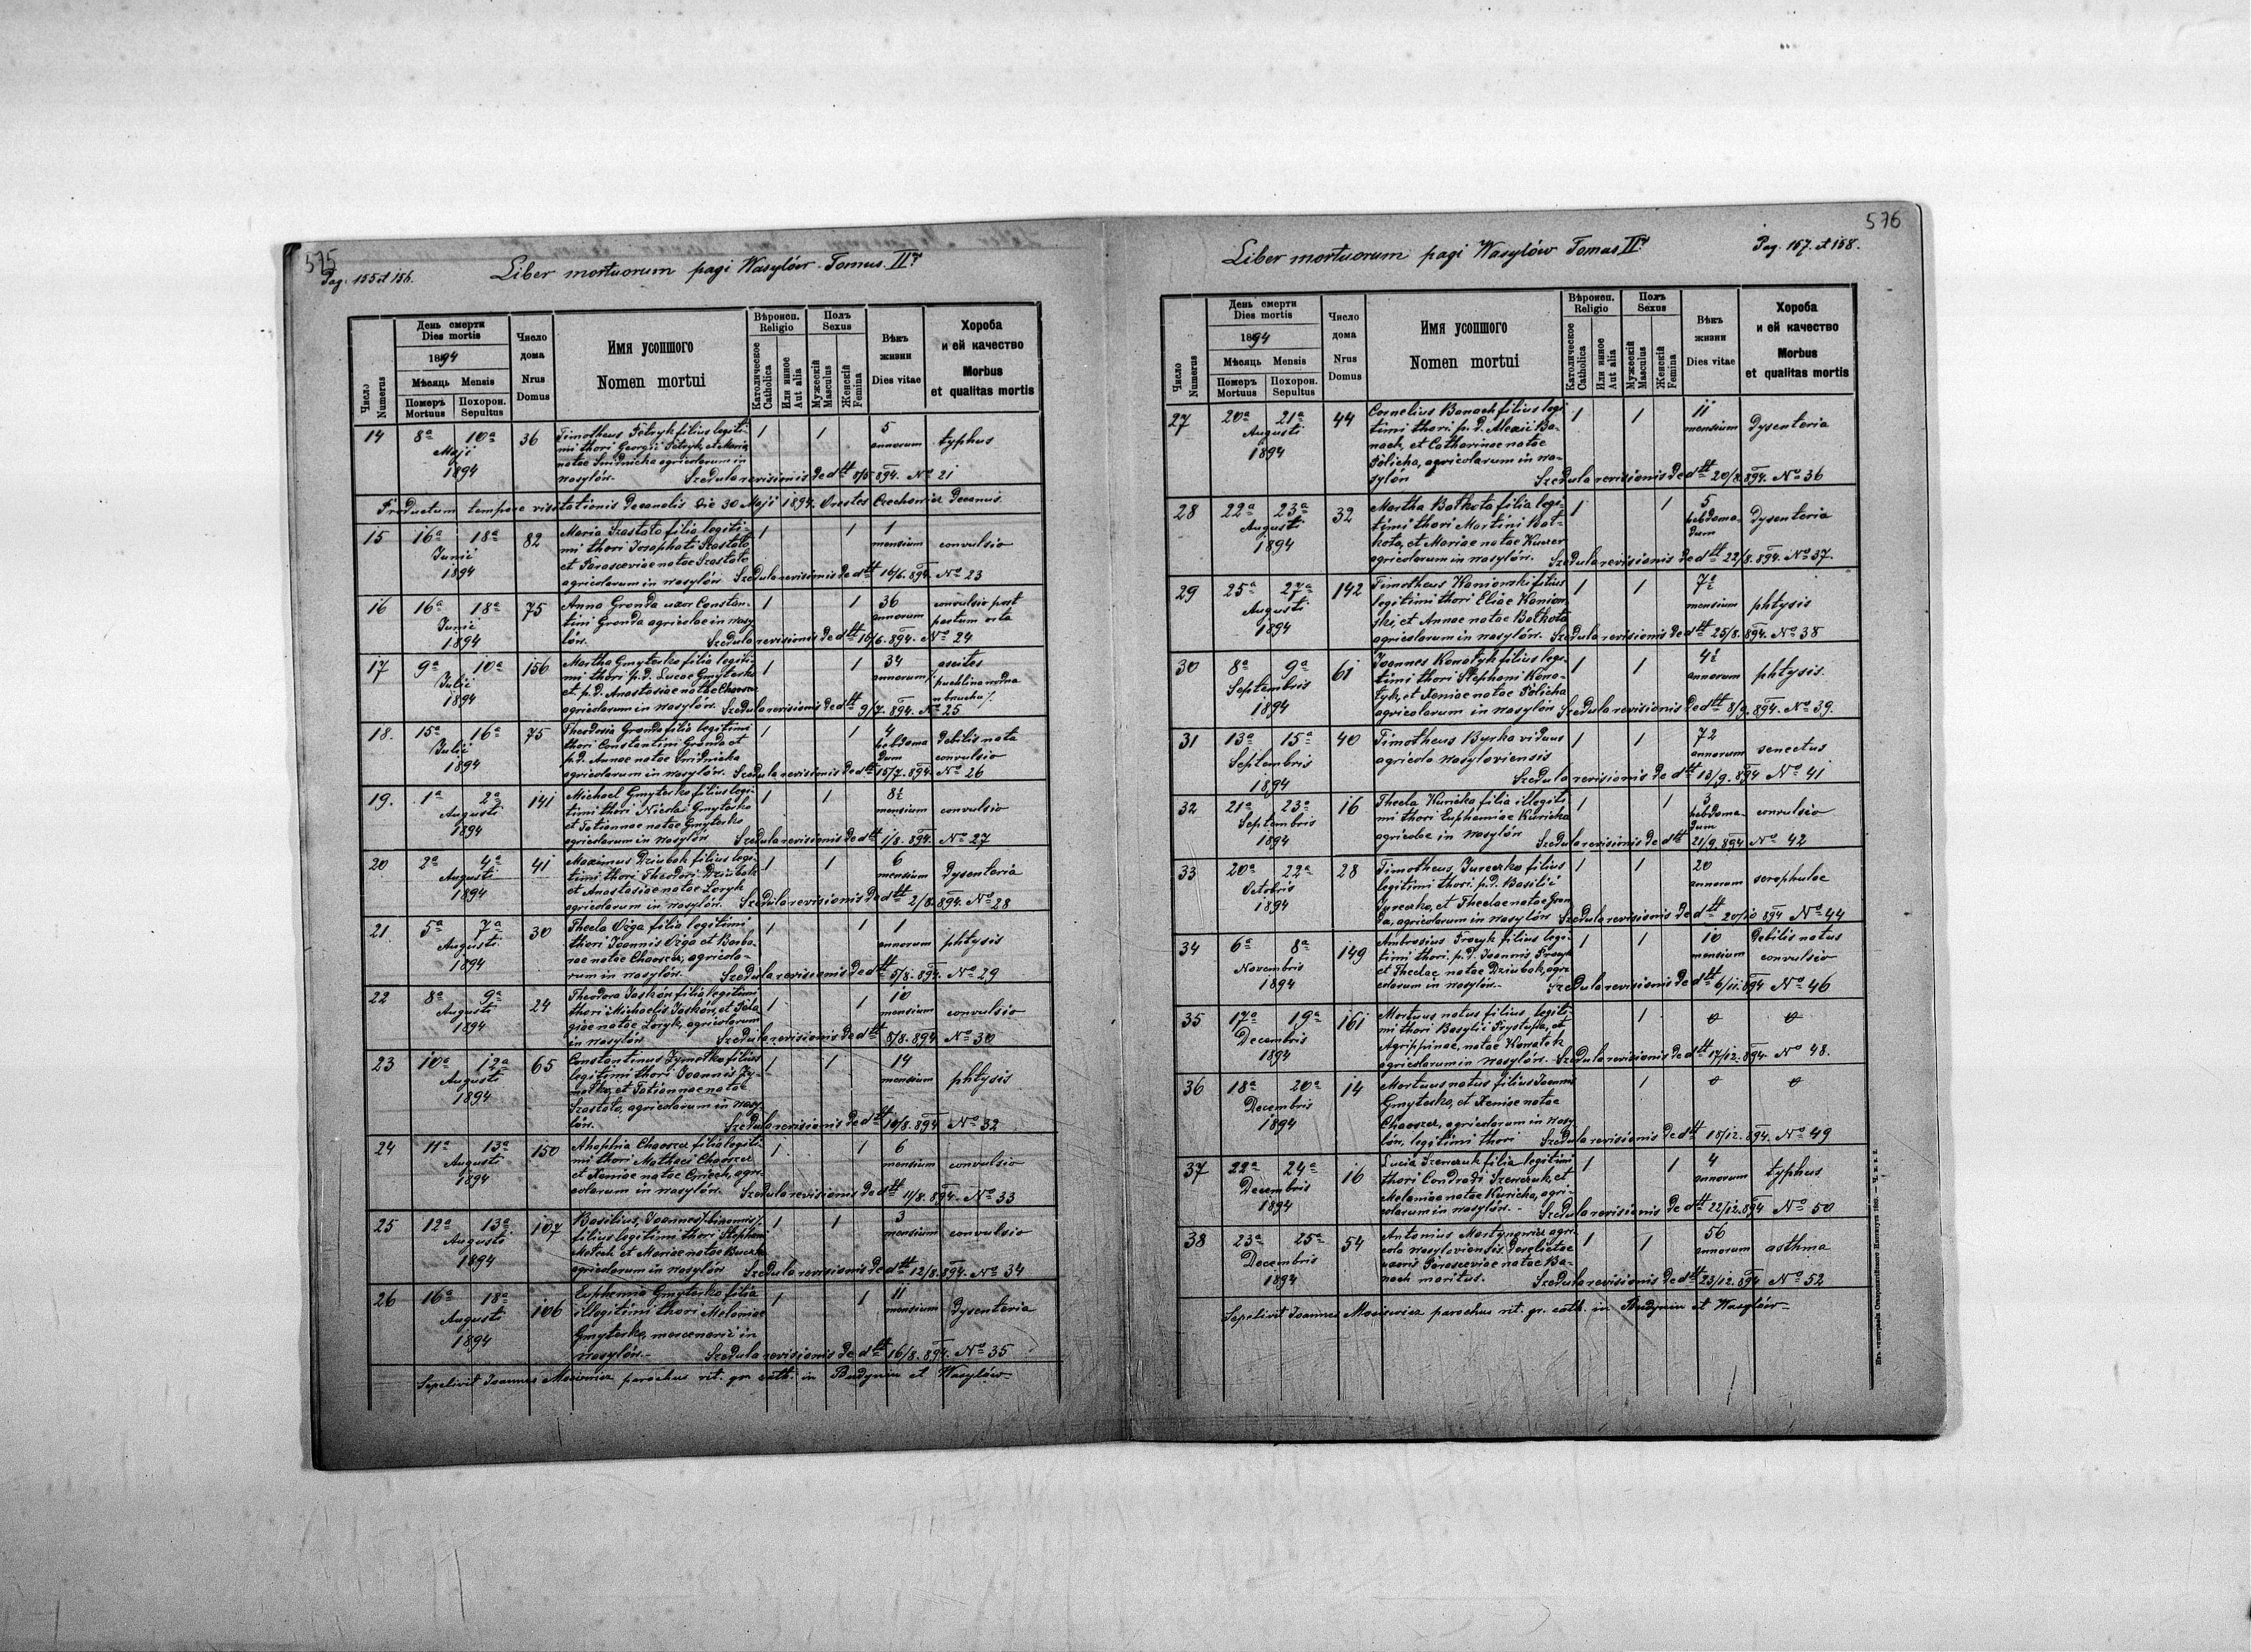 575
Pag. 155 et 156.
Liber mortuorum pagi Wasylów Tomus II.
Число Numerus
День смерти
Dies mortis
1894
Мѣсяць Mensis
Померъ Mortuus
Похорон. Sepultus
Число дома
Nrus Domus
Имя усопшого
Nomen mortui
Вѣроисп. Religio
Католическое Catholica
Или иное Aut alia
Полъ Sexus
Мужескій Masculus
Женскій Femina
Вѣкъ жизни
Dies vitae
Хороба и ей качество
Morbus et qualitas mortis
14 8a 10a Maji 1894 36 Timotheus Petryk filius legiti-
mi thori Georgii Petryk, et Mariae
natae Smidnicka agricolarum in
Wasylów. 1 1 5 annorum typhus
Szedula revisionis de dtt 8/5 894. No 21
Productum tempore visitationis decanalis die 30 Maji 1894. Orestes Czechowicz Decanus.
15 16a 18a Junii 1894 82 Maria Szastało filia legiti-
mi thori Josaphati Szastało
et Parasceviae natae Szastało
agricolarum in Wasylów 1 1 1 mensium convulsio
Szedula revisionis de dtt 16/6. 894. No 23
16 16a 18a Junii 1894 75 Anna Gronda uxor Constan-
tini Gronda agricolae in Wasy-
lów. 1 1 36 annorum convulsio post partum orta
Szedula revisionis de dtt 16/6. 894. No 24
17 9a 10a Julii 1894 156 Martha Gmyterko filia legiti-
mi thori p.d. Lucae Gmyterko
et p.d. Anastasiae natae
agricolarum in Wasylów. 1 1 34 annorum ascites /puchlina wodna w brzuchu/
Szedula revisionis de dtt 9/7. 894. No 25
18. 15a 16a Julii 1894 75 Theodosia Gronda filia legitimi
thori Constantini Gronda et
p.d. Annae natae Smidnicka
agricolarum in Wasylów. 1 1 4 hebdomadum debilis nata convulsio
Szedula revisionis de dtt 15/7. 894. No 26
19. 1a 2a Augusti 1894 141 Michael Gmyterko filius legi-
timi thori Nicolai Gmyterko
et Tatiannae natae Gmyterko
agricolarum in Wasylów 1 1 mensium convulsio
Szedula revisionis de dtt 1/8. 894. No 27
20 2a 4a Augusti 1894 41 Maximus Dziubak filius legi-
timi thori Theodori Dziubak
et Anastasiae natae Loryk
agricolarum in Wasylów. 1 1 6 mensium Dysenteria
Szedula revisionis de dtt 2/8. 894. No 28
21 5a 7a Augusti 1894 30 Thecla Ożga filia legitimi
thori Joannis Ożga et Barba-
rae natae agricola-
rum in Wasylów. 1 1 1 annorum phtysis
Szedula revisionis de dtt 5/8. 894. No 29
22 8a 9a Augusti 1894 24 Theodora Jaskón filia legitimi
thori Michaelis Jaskón, et Pela-
giae natae Loryk, agricolarum
in Wasylów 1 1 10 mensium convulsio
Szedula revisionis de dtt 8/8. 894 No 30
23 10a 12a Augusti 1894 65 Constantinus Żymołko filius
legitimi thori Joannis Ży-
mołko, et Tatiannae natae
Szastało, agricolarum in Wasy-
lów. 1 1 14 mensium phtysis
Szedula revisionis de dtt 10/8. 894 No 32
24 11a 13a Augusti 1894 150 filia legiti-
mi thori Mathaei
et Xeniae natae agri-
colarum in Wasylów. 1 1 6 mensium convulsio
Szedula revisionis de dtt 11/8. 894. No 33
25 12a 13a Augusti 1894 107 Basilius, Joannes /:binomis:/
filius legitimi thori Stephani
et Mariae natae
agricolarum in Wasylów 1 1 3 mensium convulsio
Szedula revisionis de dtt 12/8. 894. No 34
26 16a 18a Augusti 1894 106 Euphemia Gmyterko filia
illegitimi thori Melaniae
Gmyterko, mercenarii in
Wasylów. 1 1 11 mensium Dysenteria
Szedula revisionis de dtt 16/8. 894. No 35
Sepelivit Joannes parochus rit. gr. cath. in Budynin et Wasylów
576
Pag. 157. et 158.
Liber mortuorum pagi Wasylów Tomus II.
Число Numerus
День смерти
Dies mortis
1894
Мѣсяць Mensis
Померъ Mortuus
Похорон. Sepultus
Число дома
Nrus Domus
Имя усопшого
Nomen mortui
Вѣроисп. Religio
Католическое Catholica
Или иное Aut alia
Полъ Sexus
Мужескій Masculus
Женскій Femina
Вѣкъ жизни
Dies vitae
Хороба и ей качество
Morbus et qualitas mortis
27 20a 21a Augusti 1894 44 Cornelius Banach filius legi-
timi thori p.d. Alexii Ba-
nach, et Catharinae natae
Policha, agricolarum in Wa-
sylów 1 1 11 mensium Dysenteria
Szedula revisionis de dtt 20/8. 894. No 36
28 22a 23a Augusti 1894 32 Martha Bałkota filia legi-
timi thori Martini Bał-
kota, et Mariae natae
agricolarum in Wasylów. 1 1 5 hebdomadum Dysenteria
Szedula revisionis de dtt 22/8. 894. No 37.
29 25a 27a Augusti 1894 142 Timotheus Kaniowski filius
legitimi thori Eliae Kaniow-
ski, et Annae natae Bałkota
agricolarum in Wasylów. 1 1 mensium phtysis
Szedula revisionis de dtt 25/8. 894. No 38
30 8a 9a Septembris 1894 61 Joannes Konotyk filius legi-
timi thori Stephani Kono-
tyk, et Xeniae natae Policha
agricolarum in Wasylów 1 1 annorum phtysis.
Szedula revisionis de dtt 8/9. 894. No 39.
31 13a 15a Septembris 1894 40 Timotheus Byrko viduus
agricola wasyloviensis 1 1 72 annorum senectus
Szedula revisionis de dtt 13/9. 894 No 41
32 21a 23a Septembris 1894 16 Thecla Kuricka filia illegiti-
mi thori Euphemiae Kuricka
agricolae in Wasylów 1 1 3 hebdomadum convulsio
Szedula revisionis de dtt 21/9. 894 No 42
33 20a 22a Octobris 1894 28 Timotheus Jureczko filius
legitimi thori p.d. Basilii
Jureczko, et Theclae natae Gron-
da, agricolarum in Wasylów 1 1 20 annorum scrophulae
Szedula revisionis de dtt 20/10 894 No 44
34 6a 8a Novembris 1894 149 Ambrosius filius legi-
timi thori p.d. Joannis
et Theclae natae Dziubak, agri-
colarum in Wasylów. 1 1 10 mensium debilis natus convulsio
Szedula revisionis de dtt 6/11. 894 No 46
35 17a 19a Decembris 1894 161 Mortuus natus filius legiti-
mi thori Basilii Prystupa, et
Agrippinae, natae
agricolarum in Wasylów. 1
Szedula revisionis de dtt 17/12. 894. No 48.
36 18a 20a Decembris 1894 14 Mortuus natus filius Joannis
Gmyterko, et Xeniae natae
agricolarum in Wasy-
lów, legitimi thori 1
Szedula revisionis de dtt 18/12. 894. No 49
37 22a 24a Decembris 1894 16 Lucia Szewczuk filia legitimi
thori Condrati Szewczuk, et
Melaniae natae Kuricka, agri-
colarum in Wasylów. 1 1 4 annorum typhus
Szedula revisionis de dtt 22/12. 894 No 50
38 23a 25a Decembris 1894 54 Antonius Martynowicz agri-
cola wasyloviensis derelictae
uxoris Parasceviae natae Ba-
nach maritus. 1 1 56 annorum asthma
Szedula revisionis de dtt 23/12. 894 No 52
Sepelivit Joannes parochus rit. gr. cath. in Budynin et Wasylów
Изъ типографіи Ставропигійского Института 1889.